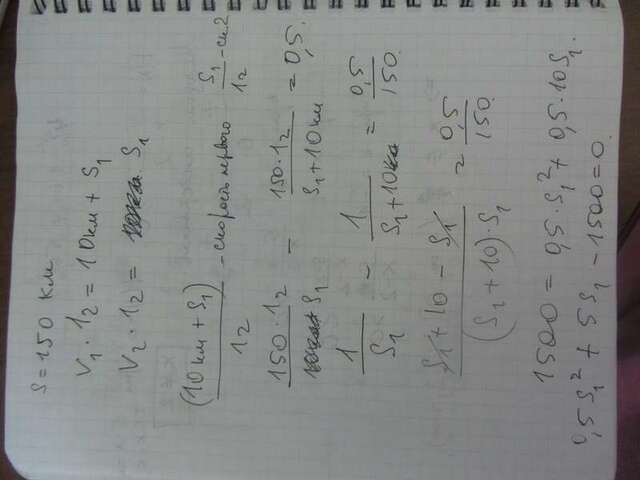 S = 150 км
V₁ · 1₂ = 10км + S₁
V₂ · 1₂ = S₁
(10 км + S₁) / 1₂ - скорость первого S₁ / 1₂ - ск. 2
150 · 1₂ / S₁ - 150 · 1₂ / S₁ + 10км = 0,5.
1 / S₁ - 1 / S₁ + 10 = 0,5 / 150.
S₁ + 10 - S₁ / (S₁ + 10) · S₁ = 0,5 / 150.
1500 = 0,5 · S₁² + 0,5 · 10S₁.
0,5 S₁² + 5 S₁ - 1500 = 0.